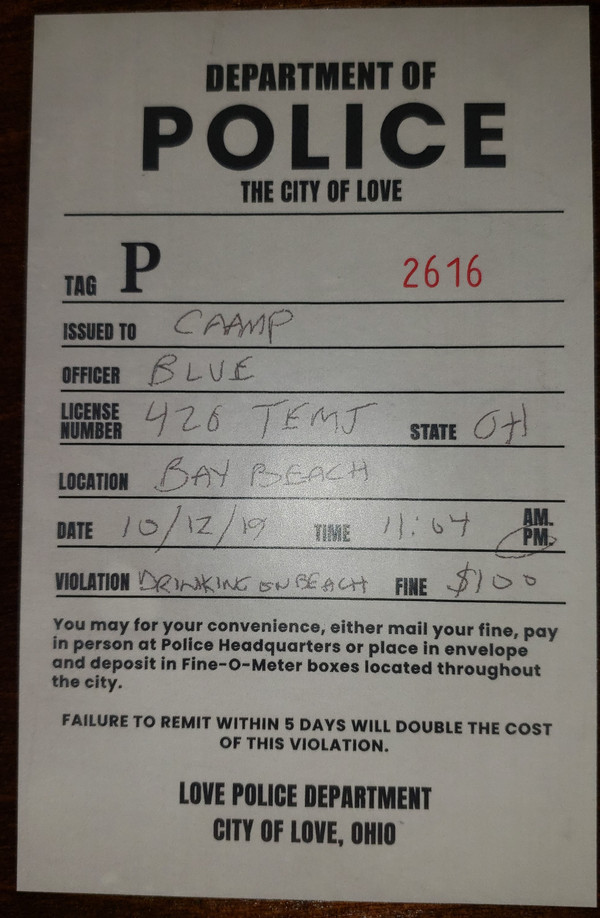 DEPARTMENT OF
POLICE
THE CITY OF LOVE
TAG P 2616
ISSUED TO CAAMP
OFFICER BLUE
LICENSE NUMBER 426 TEMJ STATE OH
LOCATION BAY BEACH
DATE 10/12/19 TIME 11:04 AM. PM.
VIOLATION DRINKING ON BEACH FINE $100
You may for your convenience, either mail your fine, pay
in person at Police Headquarters or place in envelope
and deposit in Fine-O-Meter boxes located throughout
the city.
FAILURE TO REMIT WITHIN 5 DAYS WILL DOUBLE THE COST
OF THIS VIOLATION.
LOVE POLICE DEPARTMENT
CITY OF LOVE, OHIO